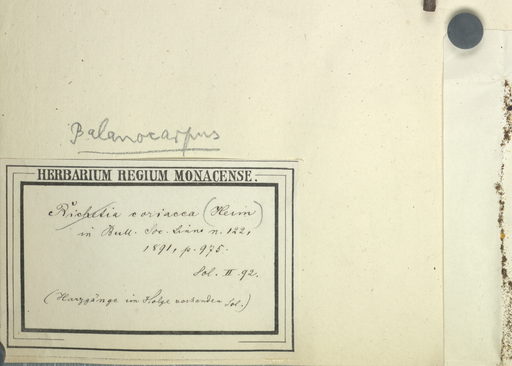 Balanocarpus
HERBARIUM REGIUM MONACENSE.
Richetia coriacea (Heim)
in Bull. Soc. Linne n. 122,
1891, p. 975.
Sol. II. 92.
(Harzgänge im Holze vorhanden Sol.)